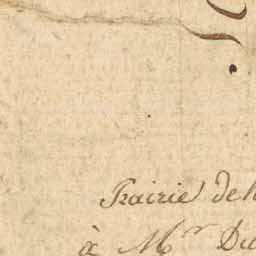 Prairie de
à Mr Du